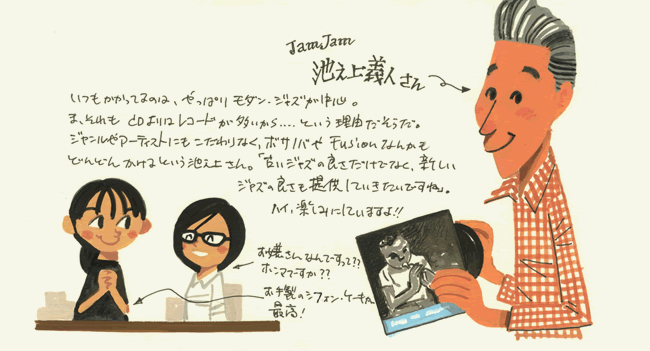 JamJam
池之上義人さん
いつもかかってるのは、やっぱり モダン・ジャズが中心。
ま、それも CDよりはレコードが多いから.... という理由だそうだ。
ジャンルやアーティストにもこだわりなく、ボサノバや Fusionなんかも
どんどん かけるという池之上さん。「古いジャズの良さだけでなく、新しい
ジャズの良さも提供していきたいですね」。
ハイ、楽しみにしていますよ!!
お嬢さんなんですって??
ホンマですか??
お手製のシフォン・ケーキも
最高!